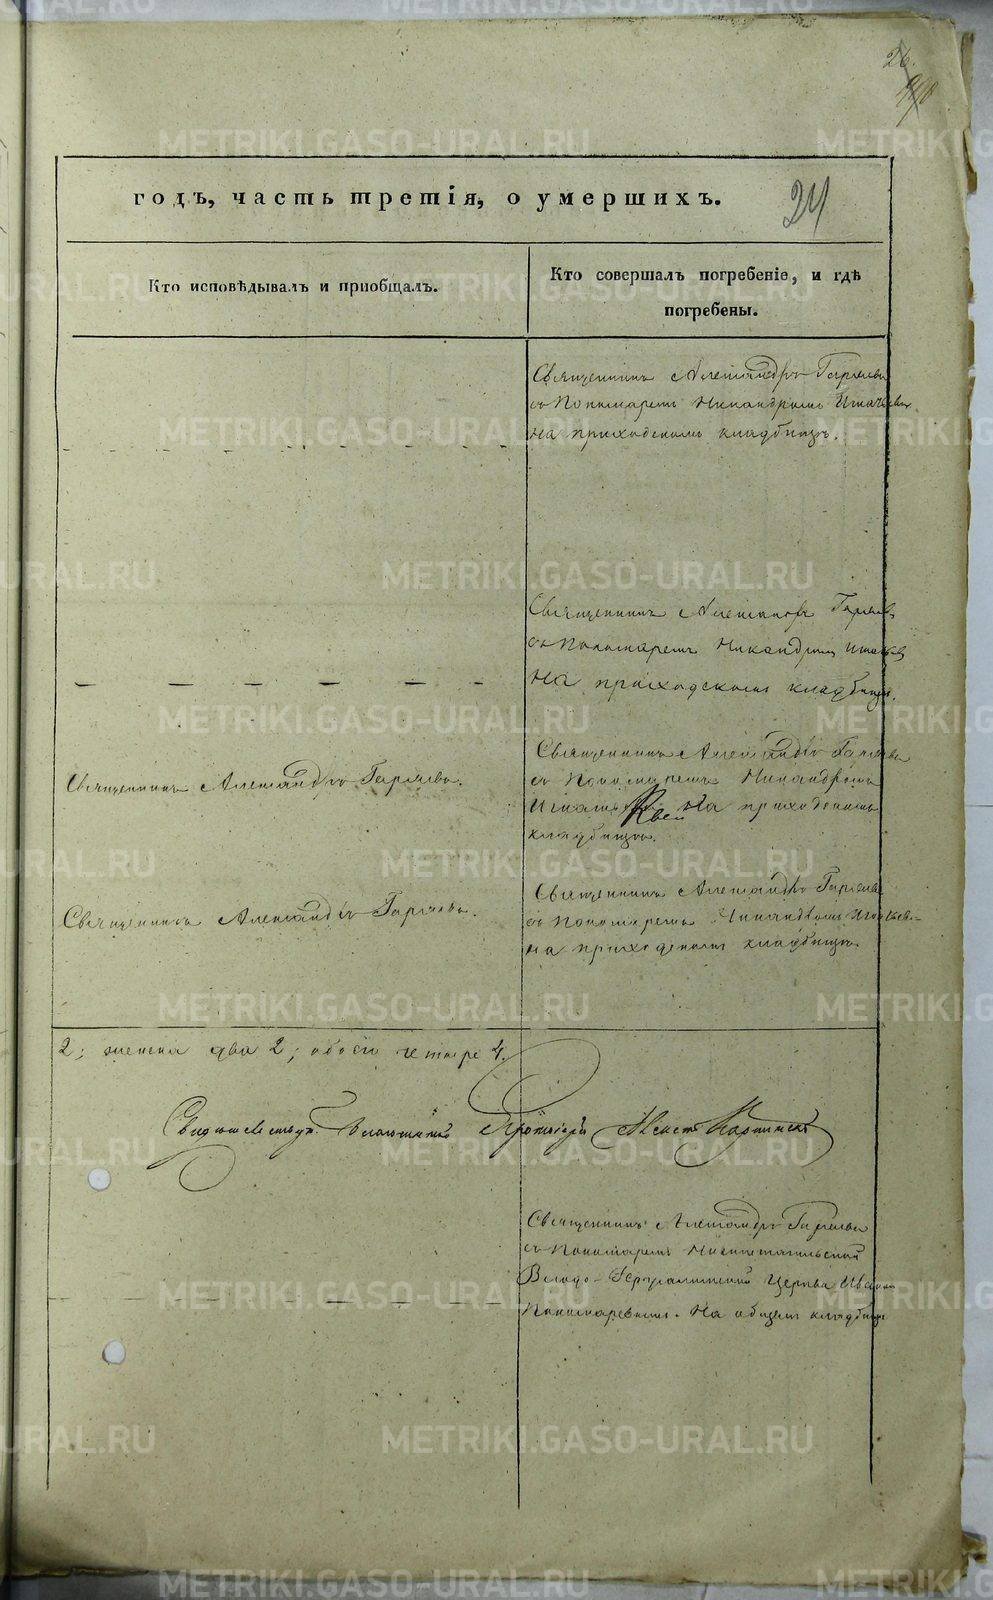 26.
годъ, часть третія, о умершихъ.
24
Кто исповѣдывалъ и пріобщалъ.
Кто совершалъ погребеніе, и гдѣ
погребены.
Священникъ Александръ Гаряевъ
съ Пономаремъ Никандромъ
на приходскомъ кладбищѣ.
Священникъ Александръ Гаряевъ
съ Пономаремъ Никандромъ
на приходскомъ кладбищѣ.
Священникъ Александръ Гаряевъ.
Священникъ Александръ Гаряевъ
съ Пономаремъ Никандромъ
на приходскомъ
кладбищѣ.
Священникъ Александръ Гаряевъ.
Священникъ Александръ Гаряевъ
съ Пономаремъ Никандромъ
на приходскомъ кладбищѣ.
2; женска два 2; обоего четыре 4.
Священникъ Александръ Гаряевъ
съ Пономаремъ Нижнетагильской
Входо-Іерусалимской Церкви Иваномъ
Пономаревымъ. На общемъ кладбищѣ
METRIKI.GASO-URAL.RU